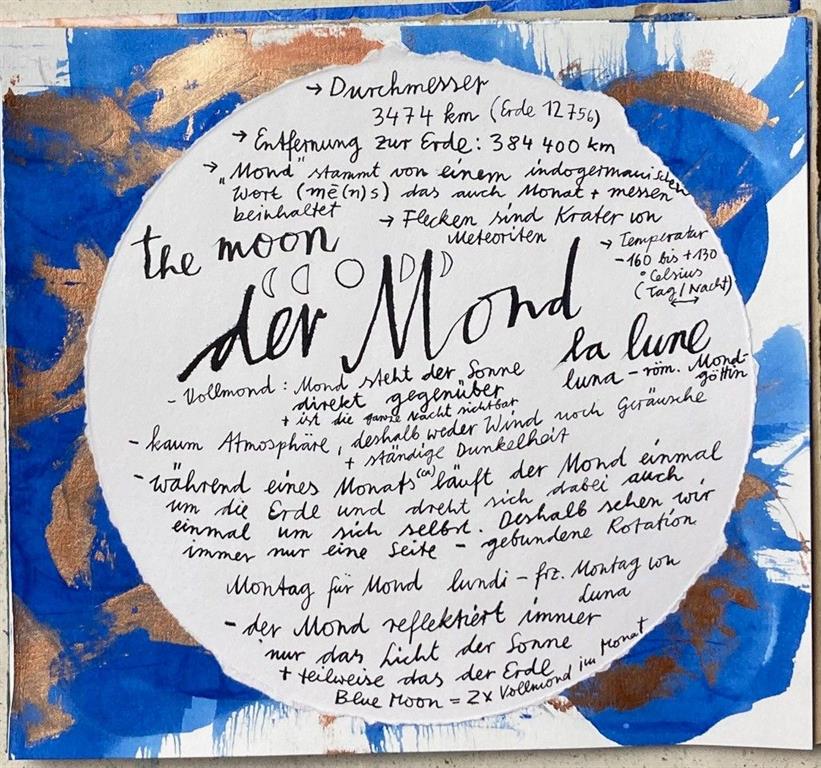 → Durchmesser
3474 km (Erde 12756)
→ Entfernung zur Erde: 384 400 km
→ „Mond" stammt von einem indogermanischen
Wort (mē(n)s) das auch Monat + messen
beinhaltet
→ Flecken sind Krater von
Meteoriten
→ Temperatur
-160 bis +130
° Celsius
(Tag/Nacht)
the moon
der Mond
la lune
luna - röm. Mond-
göttin
- Vollmond: Mond steht der Sonne
direkt gegenüber
+ ist die ganze Nacht sichtbar
- kaum Atmosphäre, deshalb weder Wind noch Geräusche
+ ständige Dunkelheit
- während eines Monats (ca) läuft der Mond einmal
um die Erde und dreht sich dabei auch
einmal um sich selbst. Deshalb sehen wir
immer nur eine Seite - gebundene Rotation
Montag für Mond lundi - frz. Montag von
Luna
- der Mond reflektiert immer
nur das Licht der Sonne
+ teilweise das der Erde
Blue Moon = 2x Vollmond im Monat